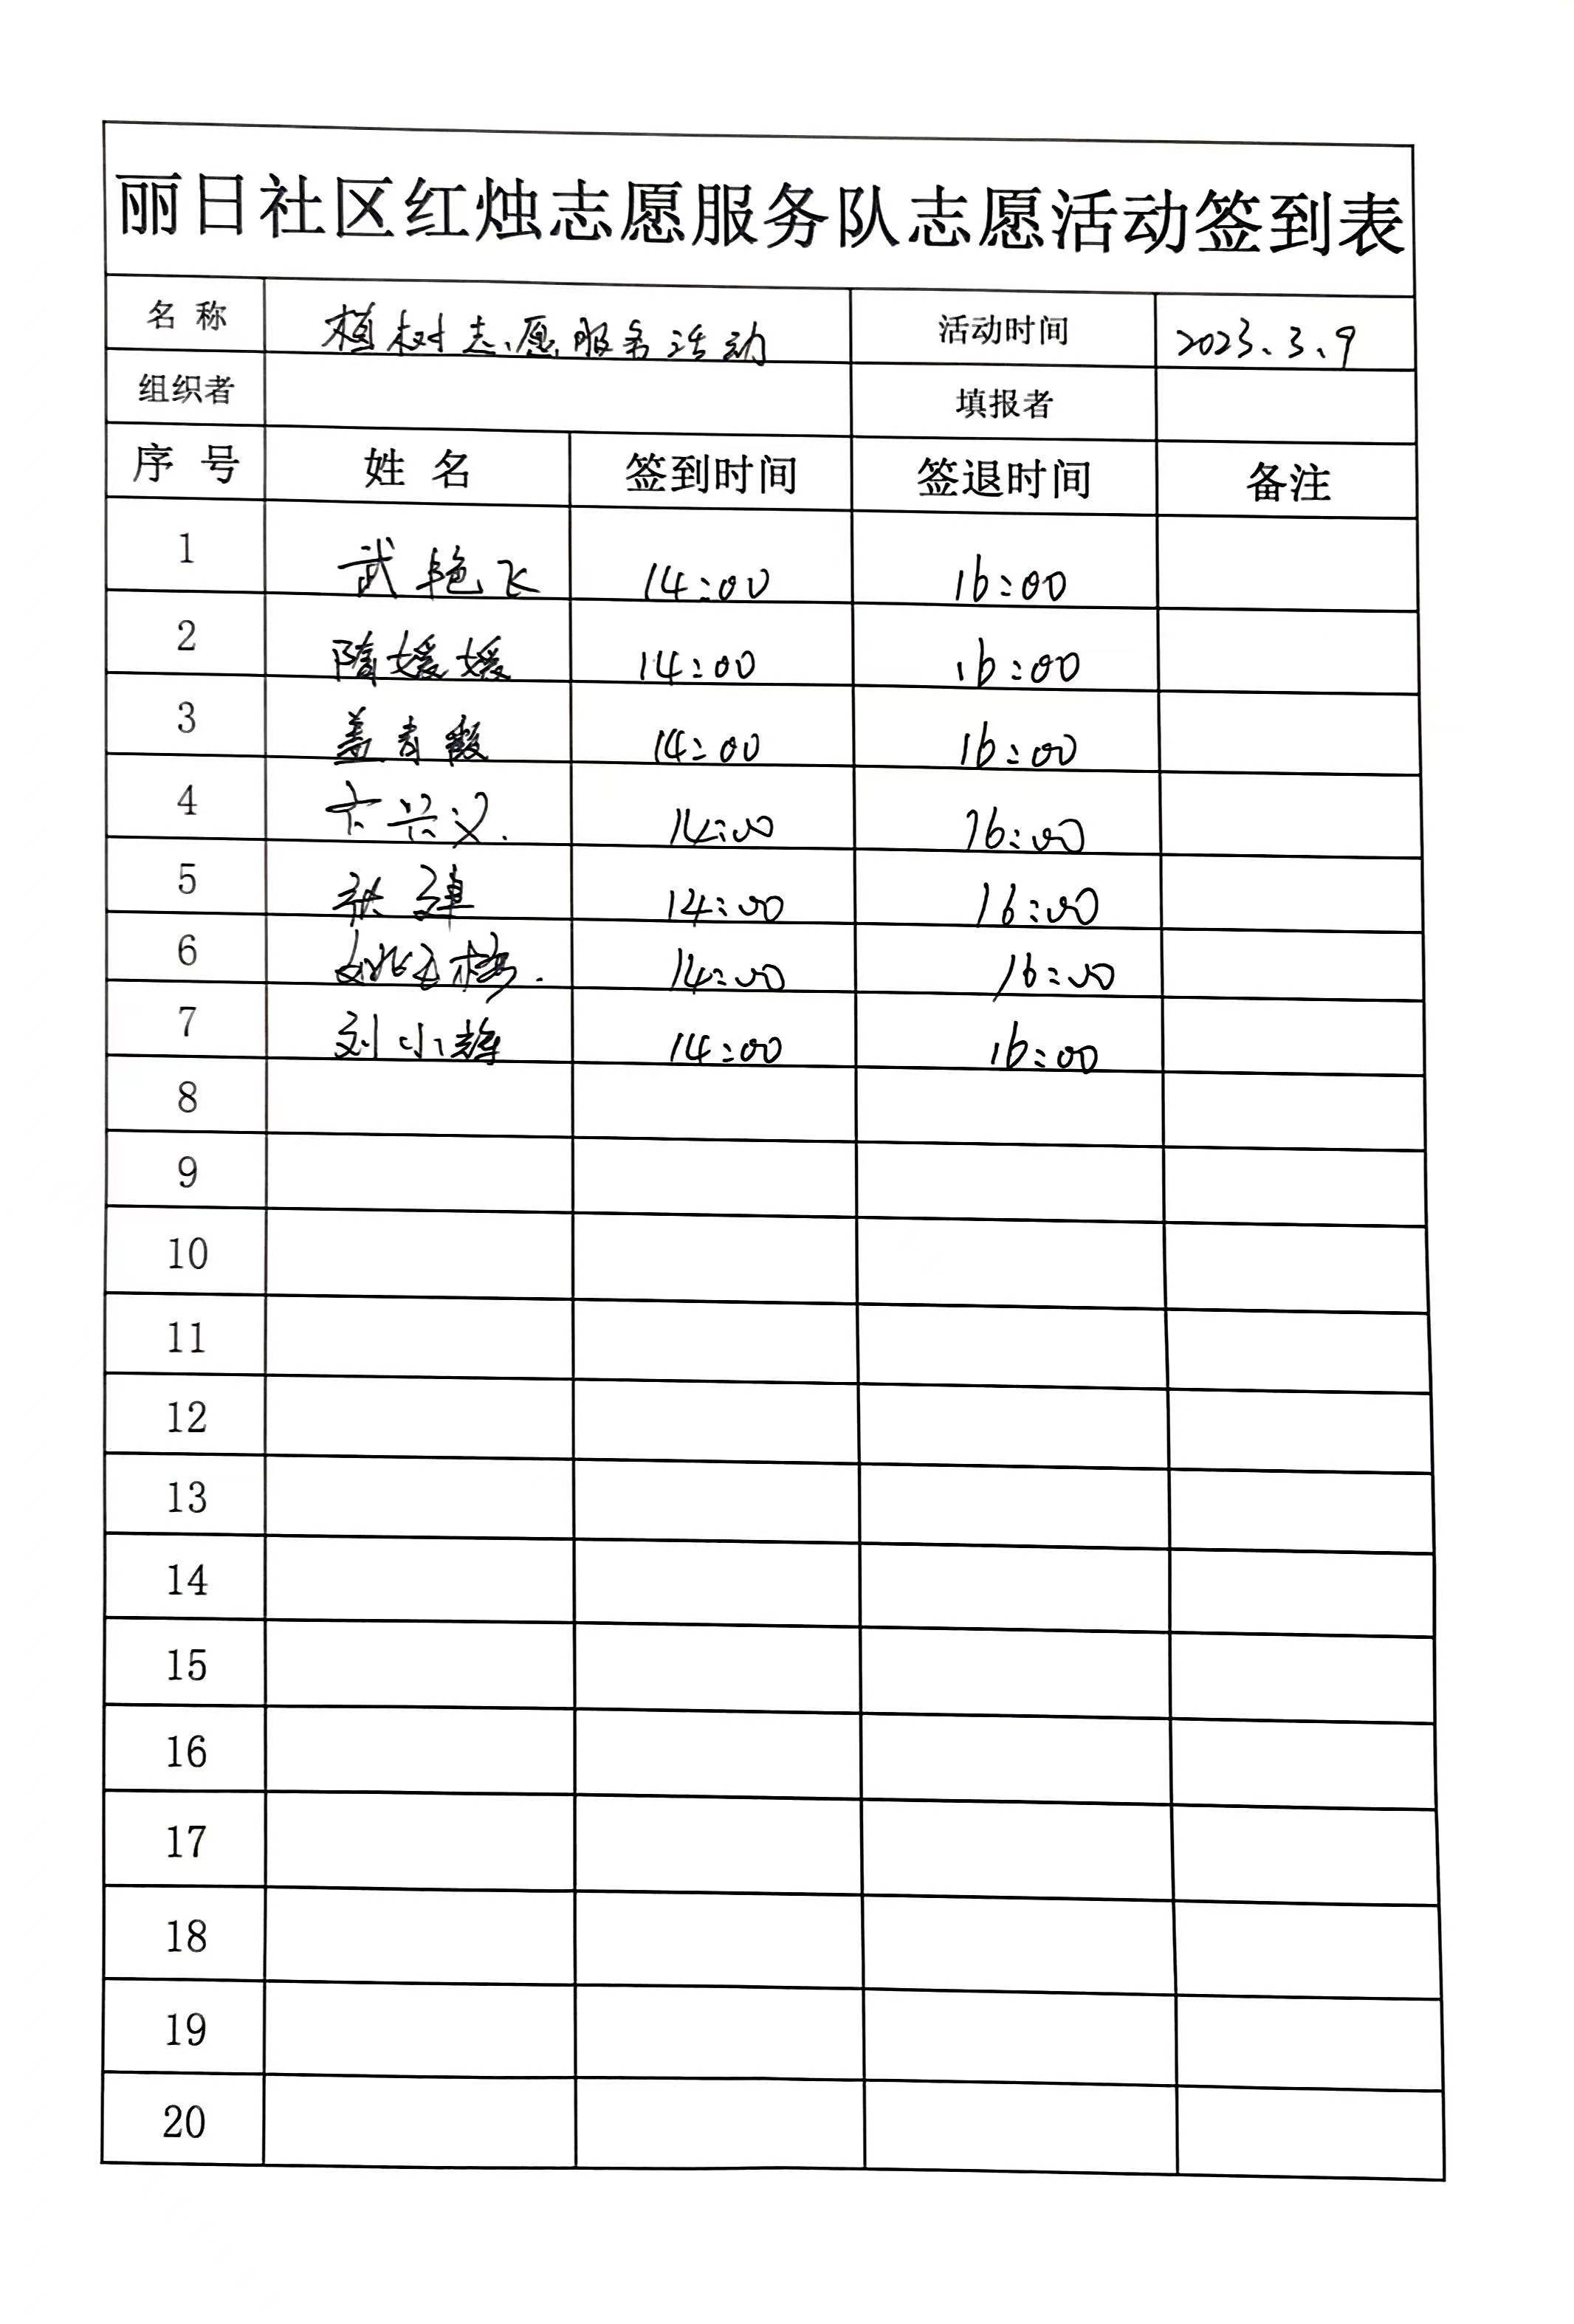 丽日社区红烛志愿服务队志愿活动签到表
名 称 植树志愿服务活动 活动时间 2023.3.9
组织者 填报者
序 号 姓 名 签到时间 签退时间 备注
1 武艳飞 14:00 16:00
2 隋媛媛 14:00 16:00
3 盖青霞 14:00 16:00
4 卞兴义. 14:00 16:00
5 张 14:00 16:00
6 姚玉 14:00 16:00
7 刘小 14:00 16:00
8
9
10
11
12
13
14
15
16
17
18
19
20